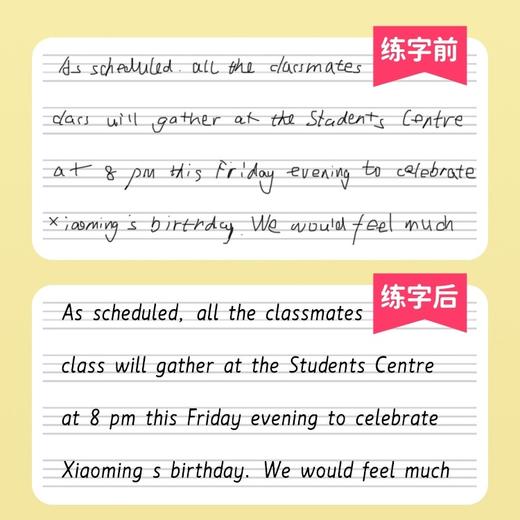 练字前
As scheduled. all the classmates
class will gather at the Students Centre
at 8 pm this Friday evening to celebrate
xiaoming's birthday. We would feel much
练字后
As scheduled, all the classmates
class will gather at the Students Centre
at 8 pm this Friday evening to celebrate
Xiaoming s birthday. We would feel much